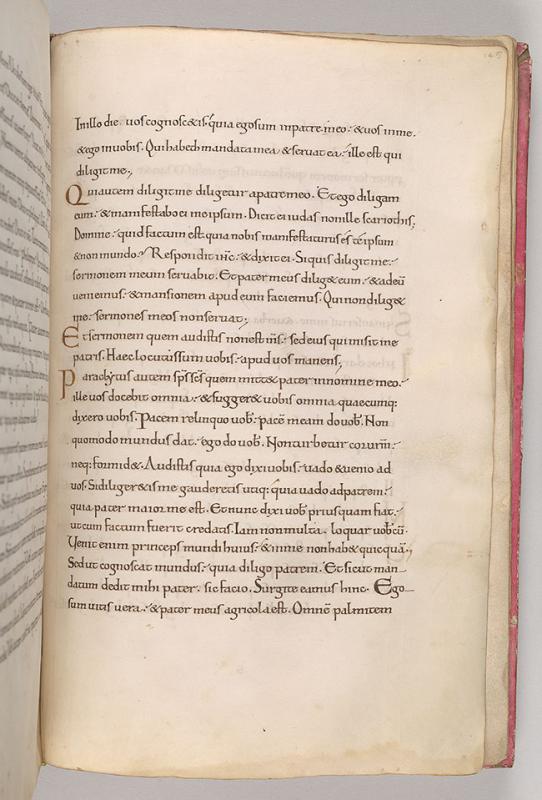 In illo die. uos cognosc&is. quia ego sum in patre meo. & uos in me.
& ego in uobis. Qui hab& mandata mea & seruat ea. ille est qui
diligit me;
Qui autem diligit me diligetur a patre meo. Et ego diligam
eum. & manifestabo ei me ipsum. Dicit ei iudas non ille scariothis;
Domine. quid factum est quia nobis manifestaturus es te ipsum
& non mundo? Respondit ihc. & dixit ei. Si quis diligit me.
sermonem meum seruabit. Et pater meus dilig& eum. & ad eū
ueniemus. & mansionem apud eum faciemus. Qui non dilig&
me. sermones meos non seruat;
Et sermonem quem audistis non est m̄s. sed eius qui misit me
patris. Haec locutus sum uobis. apud uos manens;
Paraclytus autem sp̄s sc̄s quem mitt& pater in nomine meo.
ille uos docebit omnia. & sugger& uobis omnia quaecumq:
dixero uobis. Pacem relinquo uob. pacē meam do uob. Non
quomodo mundus dat. ego do uob. Non turbetur cor urm̄.
neq: formid&. Audistis quia ego dixi uobis. uado & uenio ad
uos. Si diliger&is me gauderetis utiq: quia uado ad patrem.
quia pater maior me est. Et nunc dixi uob priusquam fiat.
ut cum factum fuerit credatis. Iam non multa. loquar uob cū.
Uenit enim princeps mundi huius. & in me non hab& quicquā;
Sed ut cognoscat mundus. quia diligo patrem. Et sicut man-
datum dedit mihi pater. sic facio. Surgite eamus hinc. Ego
sum uitis uera. & pater meus agricola est. Omnē palmitem